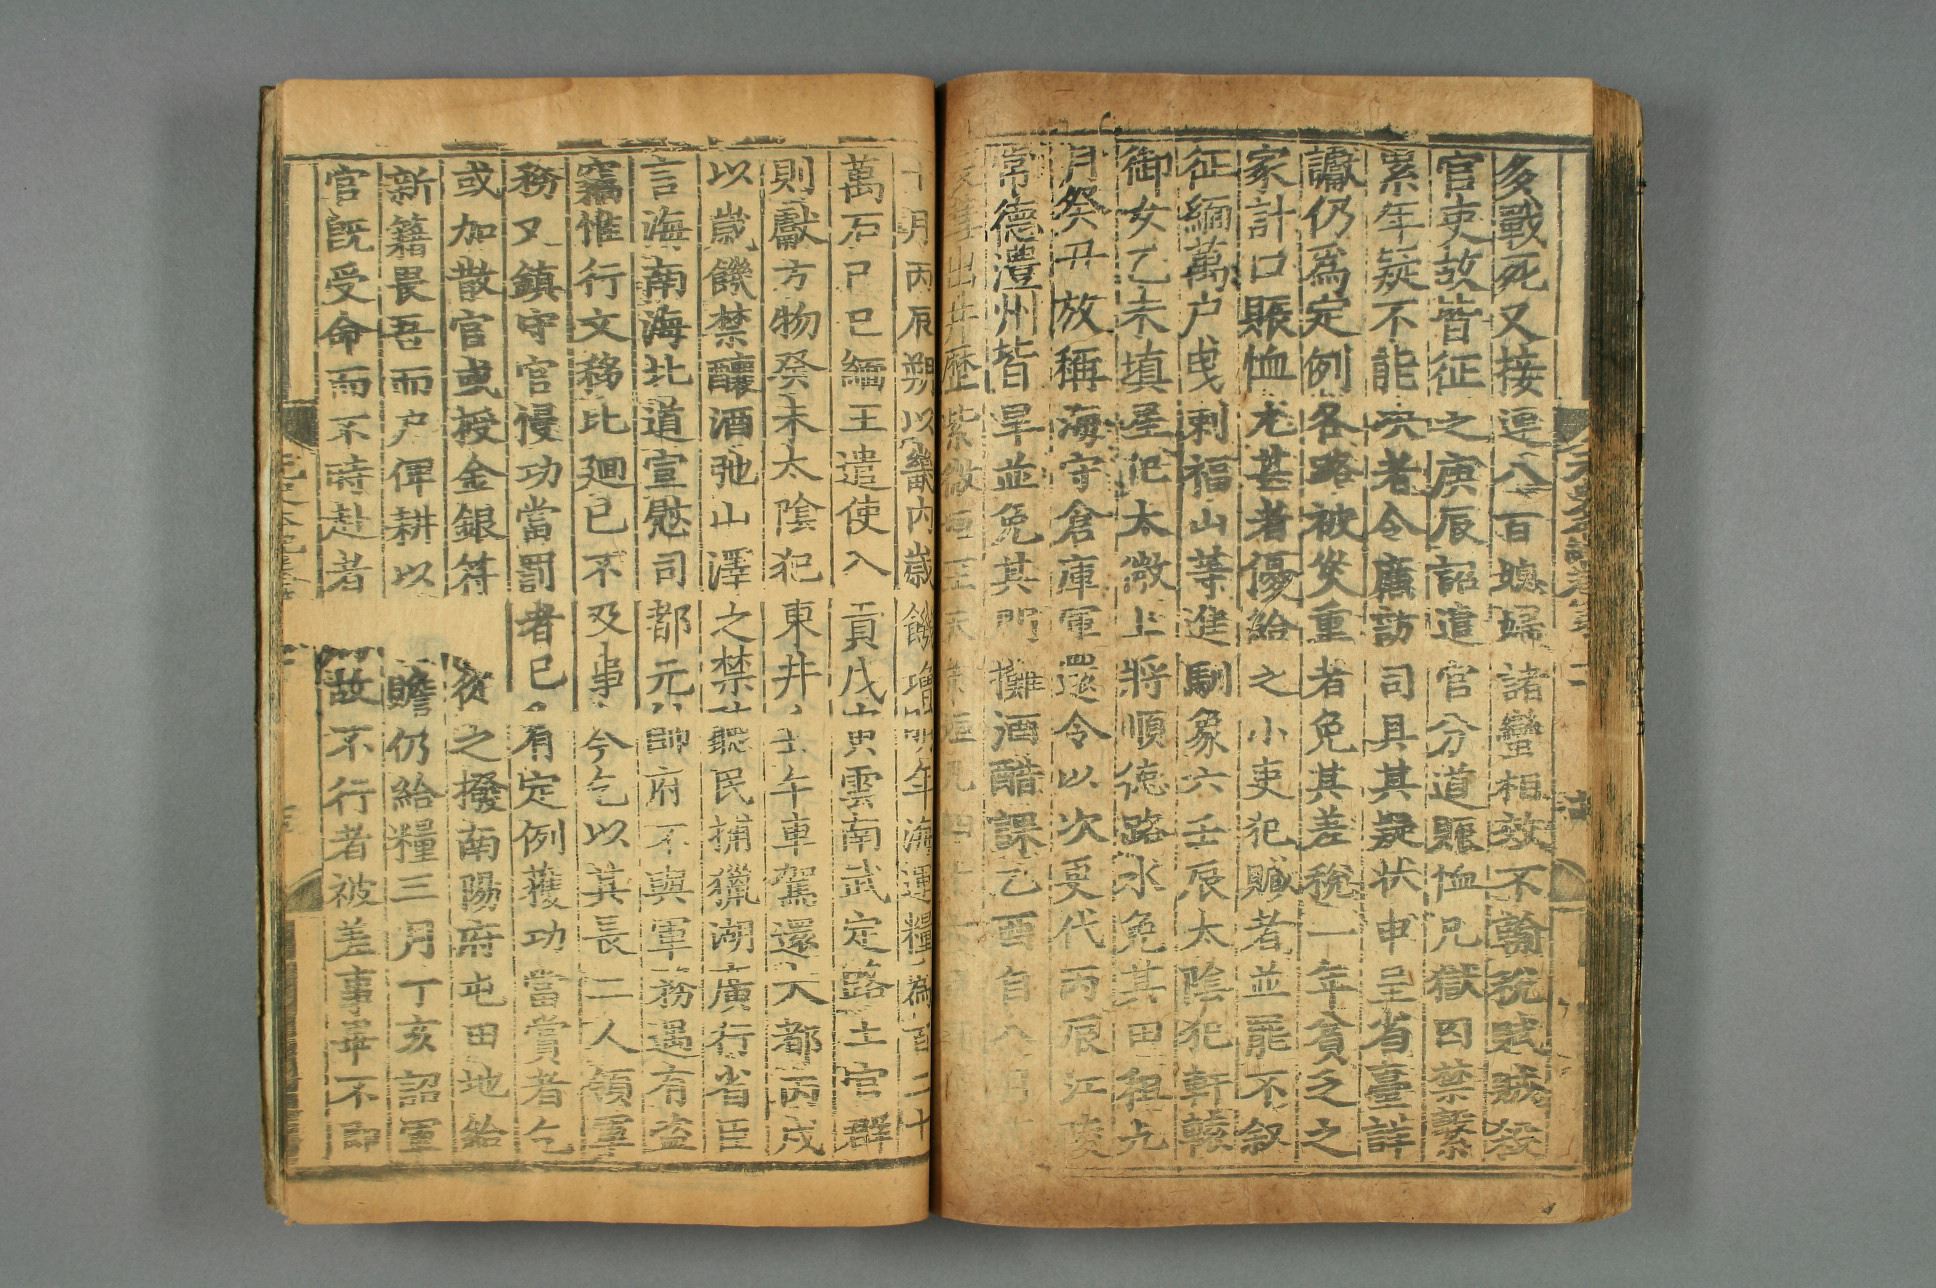 多戰死又接連八百媳婦諸蠻相效不輸稅賦賊殺
官吏故皆征之庚辰詔遣官分道賑恤凡獄囚禁繫
累年疑不能決者令廉訪司具其疑狀申呈省臺詳
讞仍為定例各路被災重者免其差稅一年貧乏之
家計口賑恤尤甚者優給之小吏犯贓者並罷不叙
征緬萬戶曳剌福山等進馴象六壬辰太陰犯軒轅
御女乙未填星犯太微上將順德路水免其田租九
月癸丑放稱海守倉庫軍還令以次更代丙辰江陵
常德澧州皆旱並免其門攤酒醋課乙酉自八月
十月丙辰朔以畿內歲饑增明年海運糧為百二十
萬石己巳緬王遣使入貢戊寅雲南武定路土官群
則獻方物癸未太陰犯東井壬午車駕還大都丙戌
以歲饑禁釀酒弛山澤之禁聽民捕獵湖廣行省臣
言海南海北道宣慰司都元帥府不與軍務遇有盜
竊惟行文移比廻已不及事今乞以其長二人領軍
務又鎮守官慢功當罰者已有定例獲功當賞者乞
或加散官或授金銀符從之撥南陽府屯田地給
新籍畏吾而戶俾耕以贍仍給糧三月丁亥詔軍
官既受命而不時赴者故不行者被差事畢不即